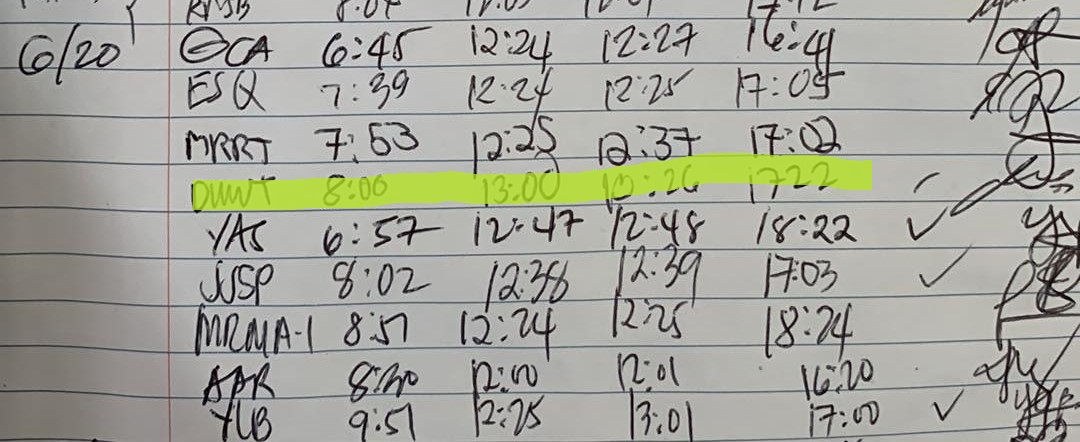 8:04
6/20 OCA 6:45 12:24 12:27 16:41
ESQ 7:39 12:24 12:25 17:05
MRRT 7:53 12:25 12:37 17:02
8:00 13:00 12:26 1722
YAS 6:57 12:47 12:48 18:22 ✓
JUSP 8:02 12:38 12:39 17:03 ✓
MRMA-1 8:51 12:24 12:25 18:24
AAR 8:30 12:00 12:01 16:20
YUB 9:51 12:25 13:01 17:00 ✓